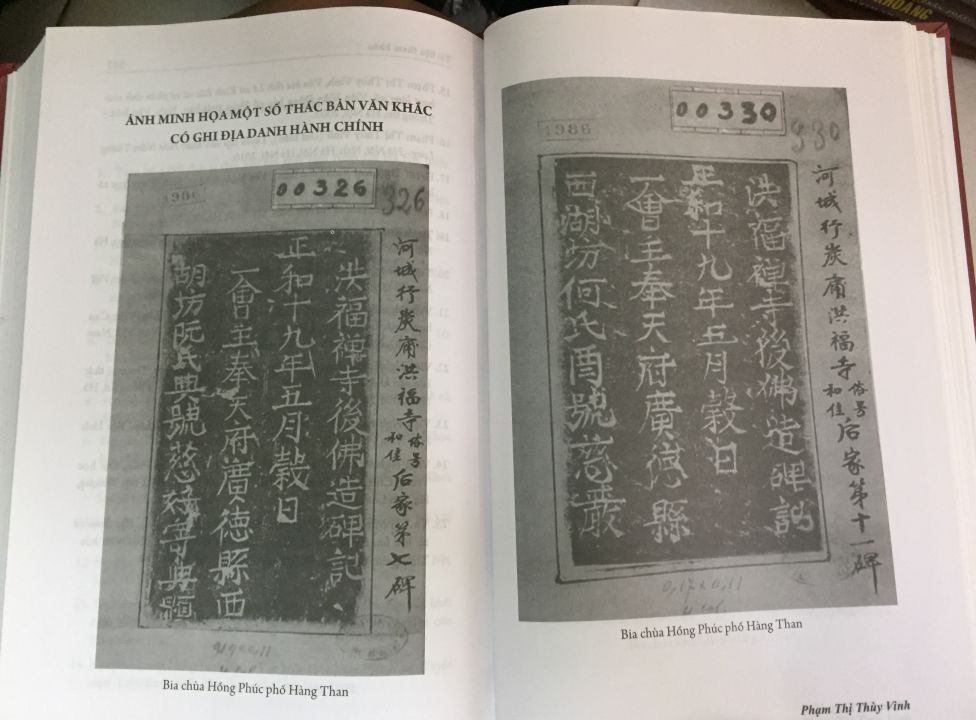 ẢNH MINH HỌA MỘT SỐ THÁC BẢN VĂN KHẮC
CÓ GHI ĐỊA DANH HÀNH CHÍNH
1986
00326
326
河城行炭庸洪福寺俗号和佳后家第七碑
洪福禪寺後佛造碑記
正和十九年五月穀日
一會主奉天府廣德縣西
湖坊阮氏典號慈
Bia chùa Hồng Phúc phố Hàng Than
1986
00330
330
河城行炭庸洪福寺俗号和佳后家第十一碑
洪福禪寺後佛造碑記
正和十九年五月穀日
一會主奉天府廣德縣
西湖坊何氏酉號慈嚴
0,17x0,11
Bia chùa Hồng Phúc phố Hàng Than
Phạm Thị Thùy Vinh
KHOANG